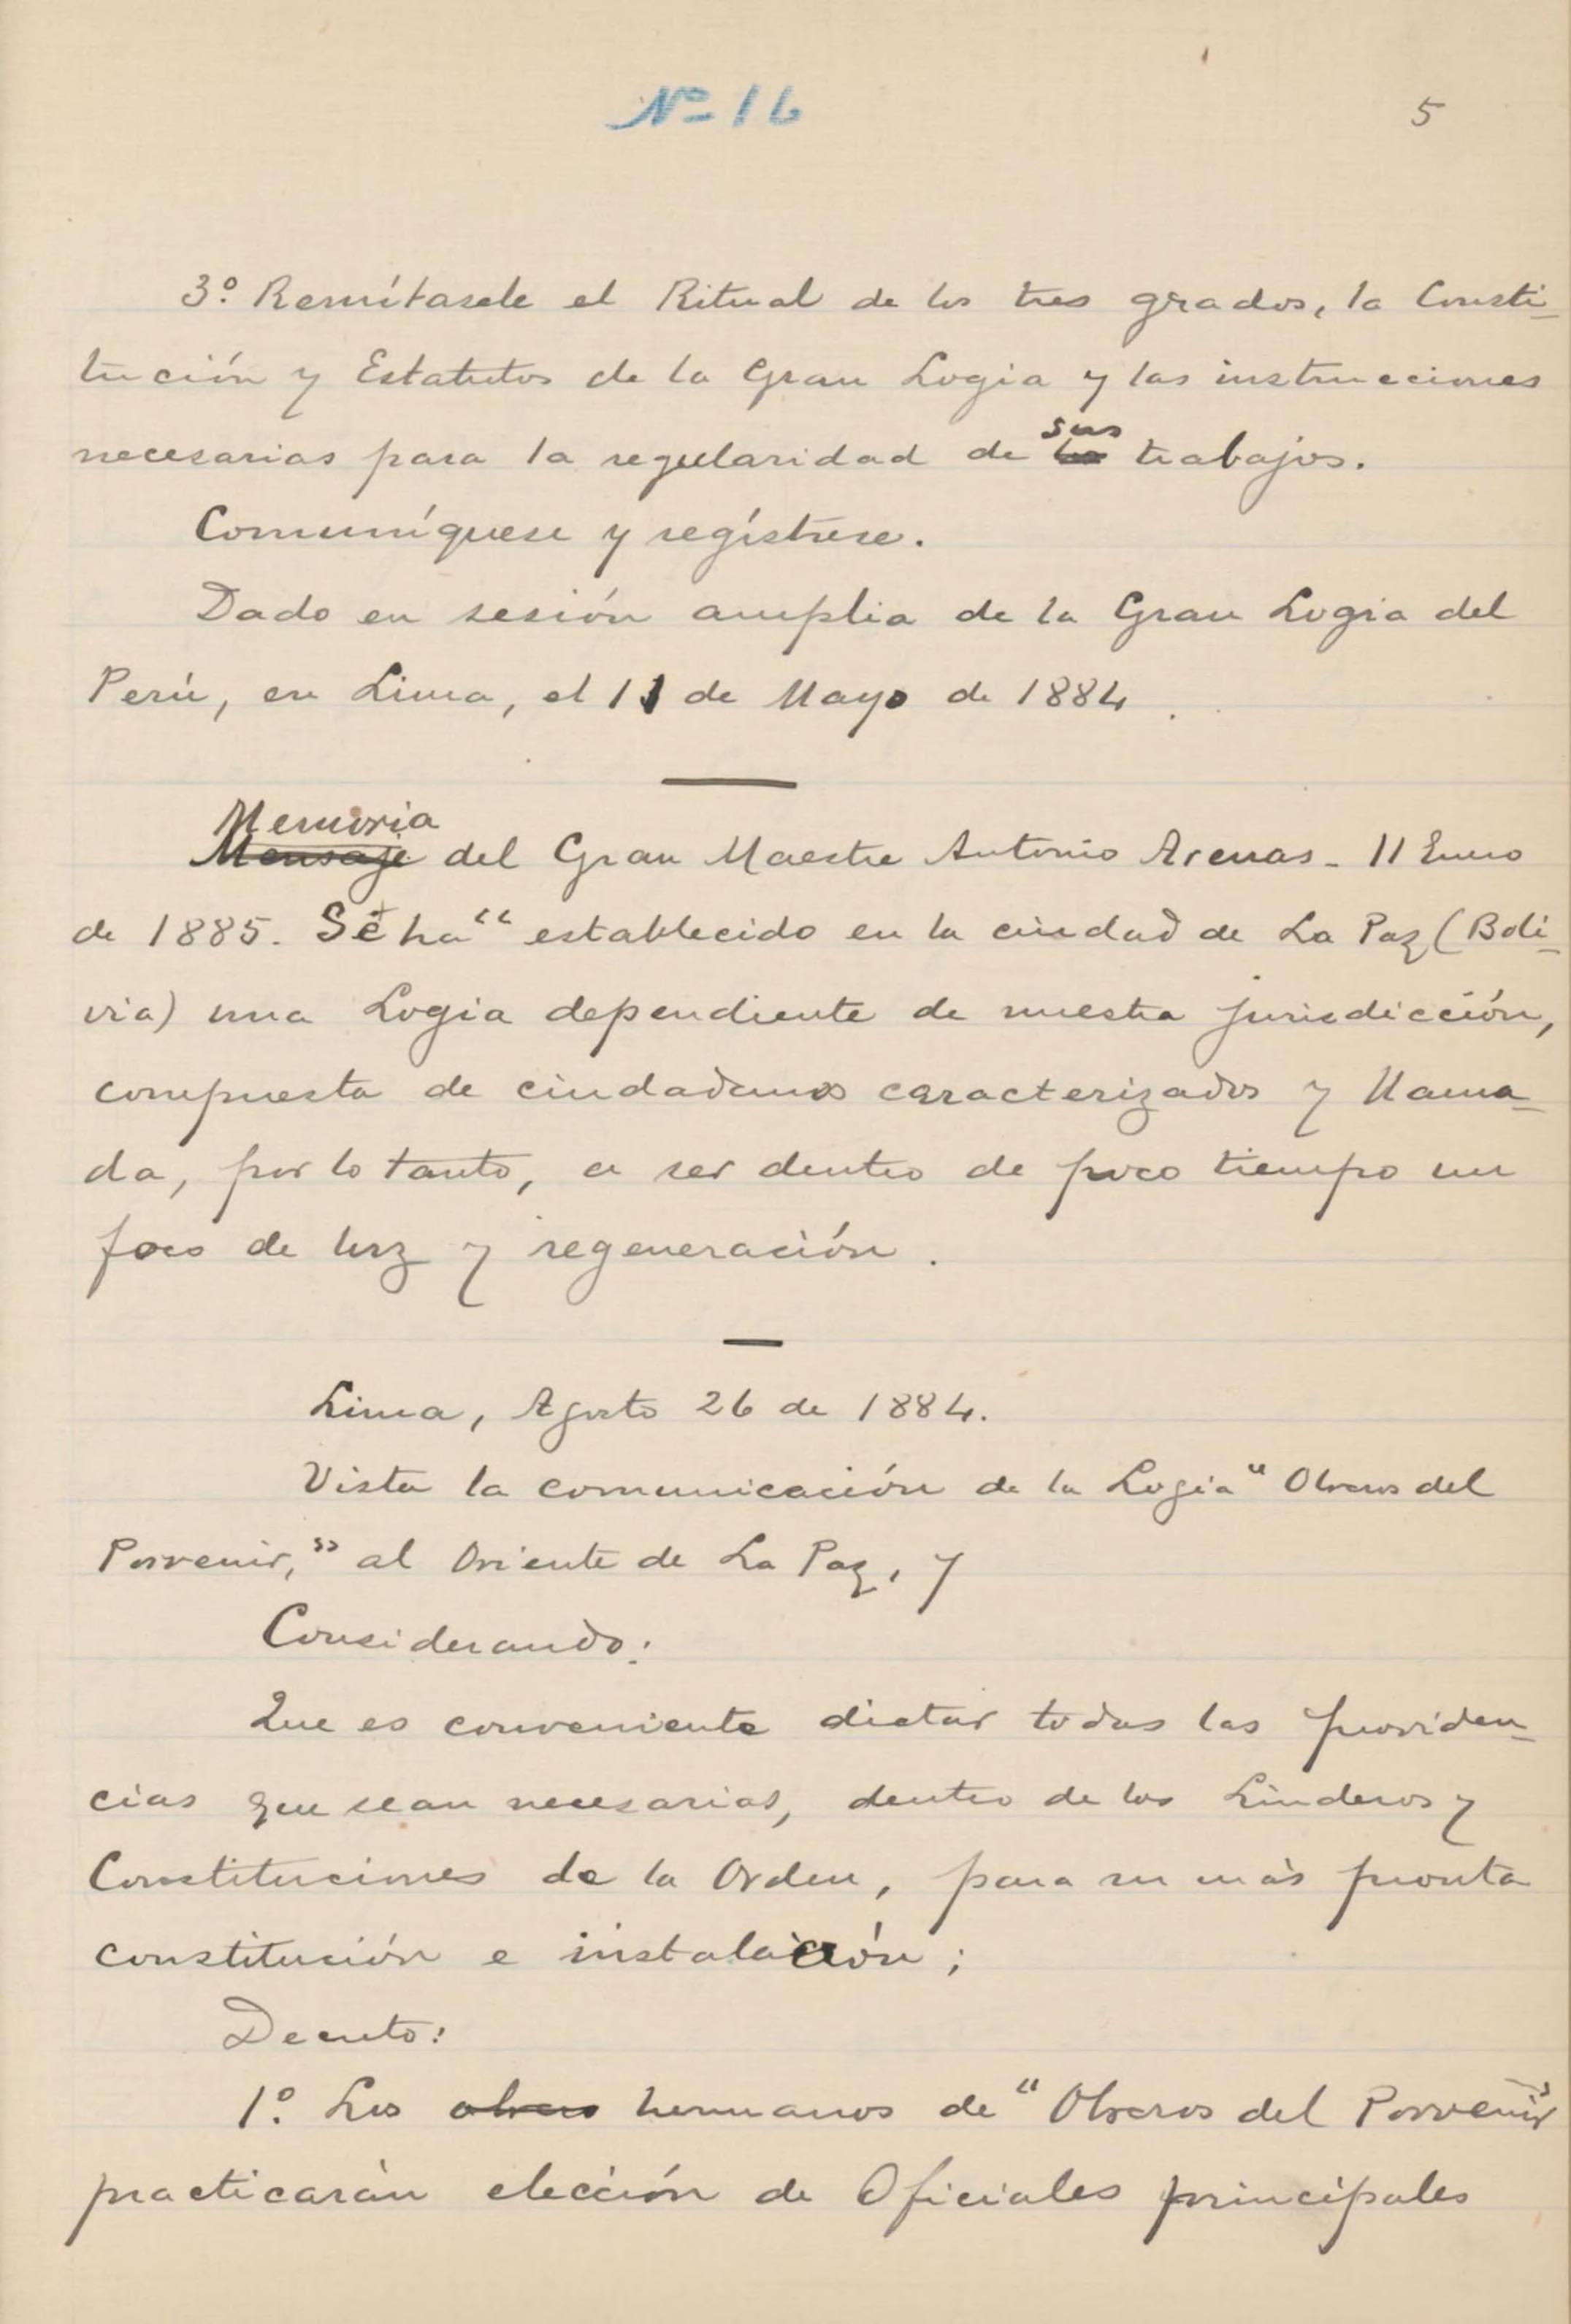 Nº 16
5
3º. Remítasele el Ritual de los tres grados, la Consti-
tución y Estatutos de la Gran Logia y las instrucciones
necesarias para la regularidad de sus trabajos.
Comuníquese y regístrese.
Dado en sesión amplia de la Gran Logia del
Perú, en Lima, el 11 de Mayo de 1884.
Memoria
Mensaje del Gran Maestre Antonio Arenas - 11 Enero
de 1885. Se ha "establecido en la ciudad de La Paz (Boli-
via) una Logia dependiente de nuestra jurisdicción,
compuesta de ciudadanos caracterizados y llama-
da, por lo tanto, a ser dentro de poco tiempo un
foco de luz y regeneración.
Lima, Agosto 26 de 1884.
Vista la comunicación de la Logia "Obreros del
Porvenir," al Oriente de La Paz, y
Considerando:
Que es conveniente dictar todas las providen-
cias que sean necesarias, dentro de los Linderos y
Constituciones de la Orden, para su más pronta
constitución e instalación;
Decreto:
1º. Los obreros hermanos de "Obreros del Porvenir"
practicarán elección de Oficiales principales